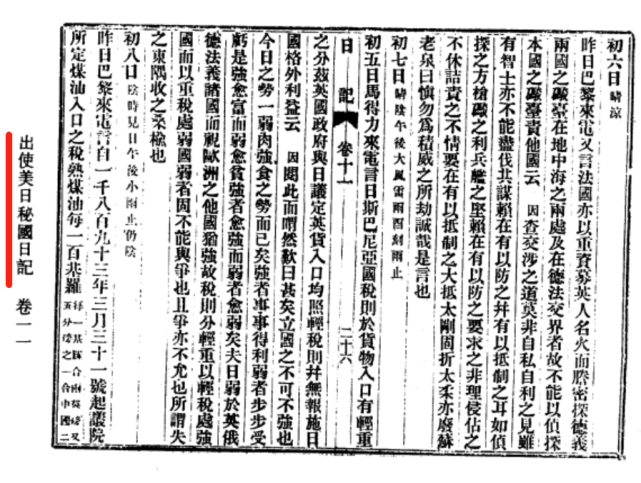 初六日 晴涼
昨日巴黎來電又言法國亦以重資募英人名火而膌密探德義
兩國之礮臺在地中海之兩處及在德法交界者故不能以偵探
本國之礮臺責他國云 因查交涉之道莫非自私自利之見雖
有智士亦不能盡伐其謀賴在有以防之幷有以抵制之耳如偵
探之方槍礮之利兵艦之堅賴在有以防之要求之非理侵佔之
不休詰責之不情要在有以抵制之大抵太剛固折太柔亦廢蘇
老泉曰愼勿爲積威之所劫誠哉是言也
初七日 晴陰午後大風雷雨酉刻雨止
初五日馬得力來電言日斯巴尼亞國稅則於貨物入口有輕重
日記 卷十一 二十六
之分茲英國政府與日議定英貨入口均照輕稅則幷無報施日
國格外利益云 因閱此而喟然歎曰甚矣立國之不可不強也
今日之勢一弱肉強食之勢而已矣強者事事得利弱者步步受
虧是強愈富而弱愈貧強者愈強而弱者愈弱矣夫日弱於英俄
德法義諸國而視歐洲之他國猶強故稅則分輕重以輕稅處強
國而以重稅處弱國弱者固不能與爭也且爭亦不允也所謂失
之東隅收之桑楡也
初八日 陰時見日午後小雨止仍陰
昨日巴黎來電言自一千八百九十三年三月三十一號起叢院
所定煤油入口之稅熟煤油每一百基羅 一基羅合兩英磅又
五分磅之一合中國二
出使美日秘國日記 卷一一